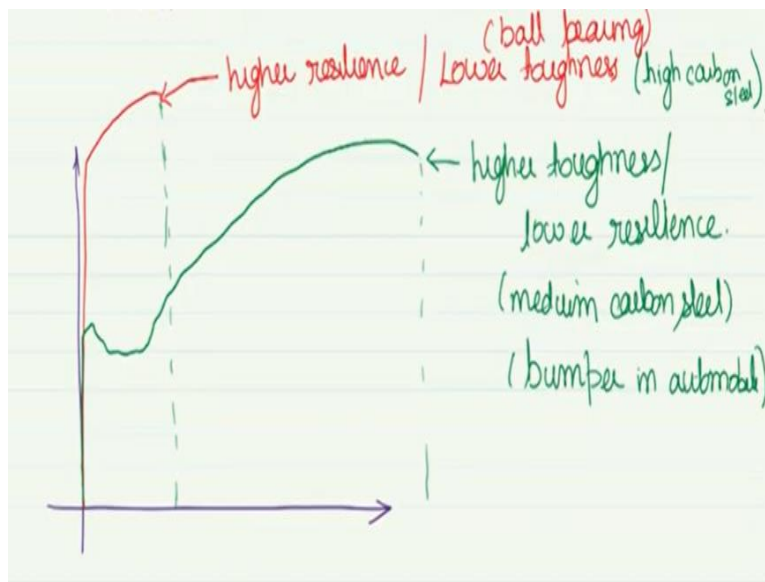 (ball bearing)
higher resilience / Lower toughness (high carbon steel)
← higher toughness/
lower resilience.
(medium carbon steel)
(bumper in automobile)